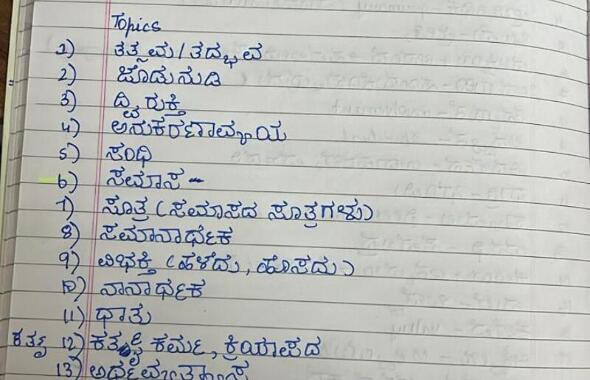 Topics
1) ತತ್ಸಮ / ತದ್ಭವ
2) ಜೋಡುನುಡಿ
3) ದ್ವಿರುಕ್ತಿ
4) ಅನುಕರಣಾವ್ಯಯ
5) ಸಂಧಿ
6) ಸಮಾಸ -
7) ಸೂತ್ರ (ಸಮಾಸದ ಸೂತ್ರಗಳು)
8) ಸಮಾನಾರ್ಥಕ
9) ವಿಭಕ್ತಿ (ಹಳೆದು, ಹೊಸದು)
10) ನಾನಾರ್ಥಕ
11) ಧಾತು
ಕರ್ತೃ 12) ಕರ್ತೃ ಕರ್ಮ, ಕ್ರಿಯಾಪದ
13) ಅರ್ಥವ್ಯತ್ಯಾಸ